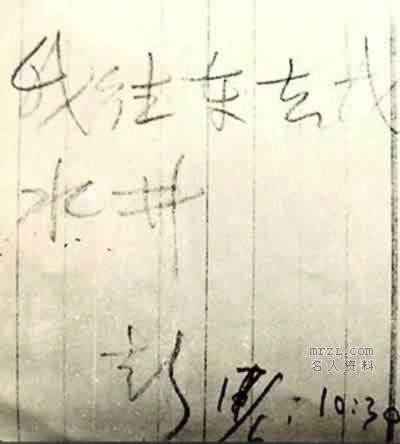 我往东去找
水井
彭 10:30
mrzl.com
名人资料